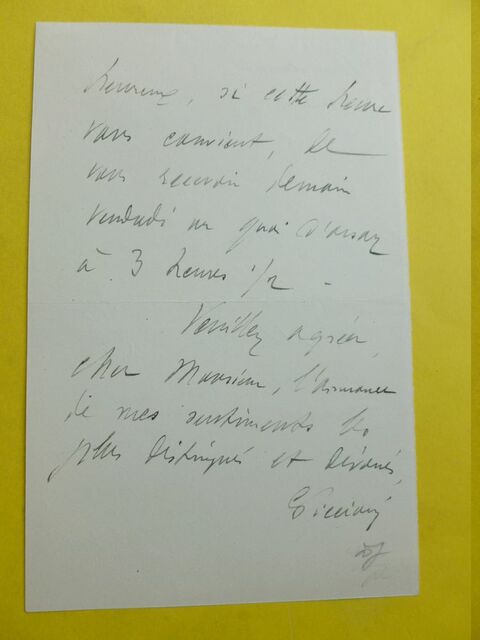 heureux, si cette heure
vous convient, de
vous recevoir demain
vendredi au quai d'orsay
à 3 heures 1/2 -
Veuillez agréer,
cher Monsieur, l'assurance
de mes sentiments les
plus distingués et dévoués,